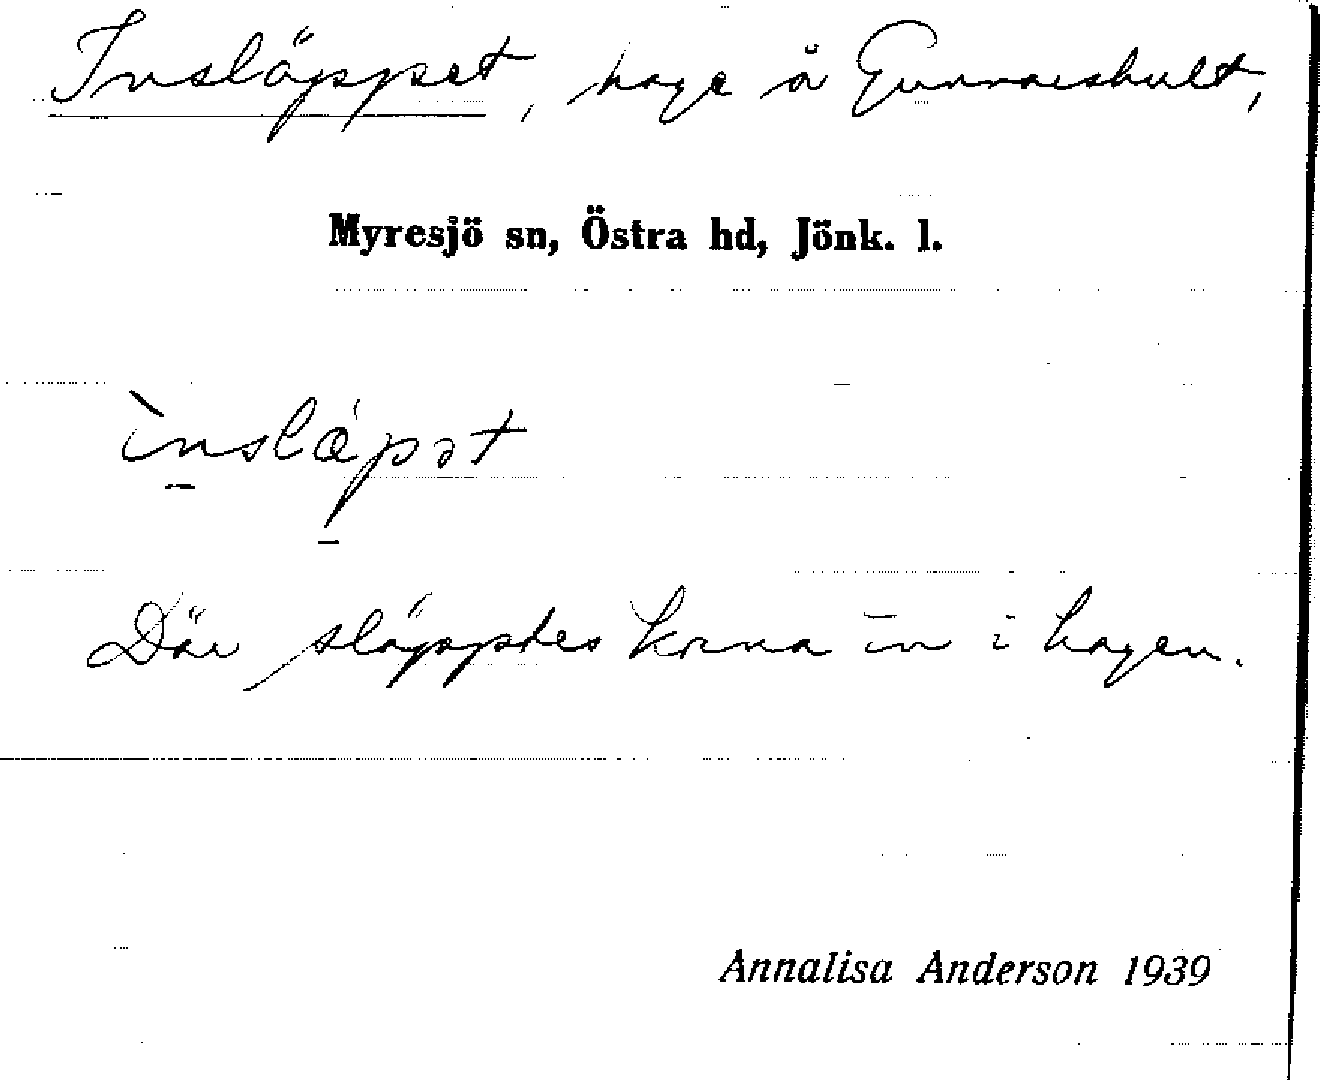 Insläppet, hage å Gunnarshult,
Myresjö sn, Östra hd, Jönk. l.
ìnslæpət
Där släpptes korna in i hagen.
Annalisa Anderson 1939